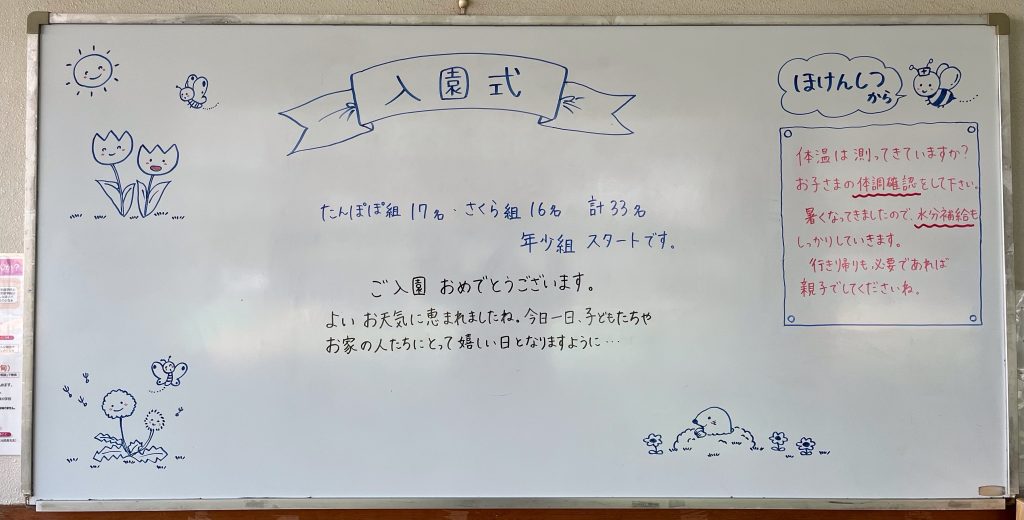 入園式
たんぽぽ組 17名・さくら組 16名 計33名
年少組 スタートです。
ご入園 おめでとうございます。
よい お天気に恵まれましたね。今日一日、子どもたちや
お家の人たちにとって嬉しい日となりますように…
ほけんしつ
から
体温は測ってきていますか?
お子さまの体調確認をして下さい。
暑くなってきましたので、水分補給も
しっかりしていきます。
行き帰りも、必要であれば
親子でしてくださいね。